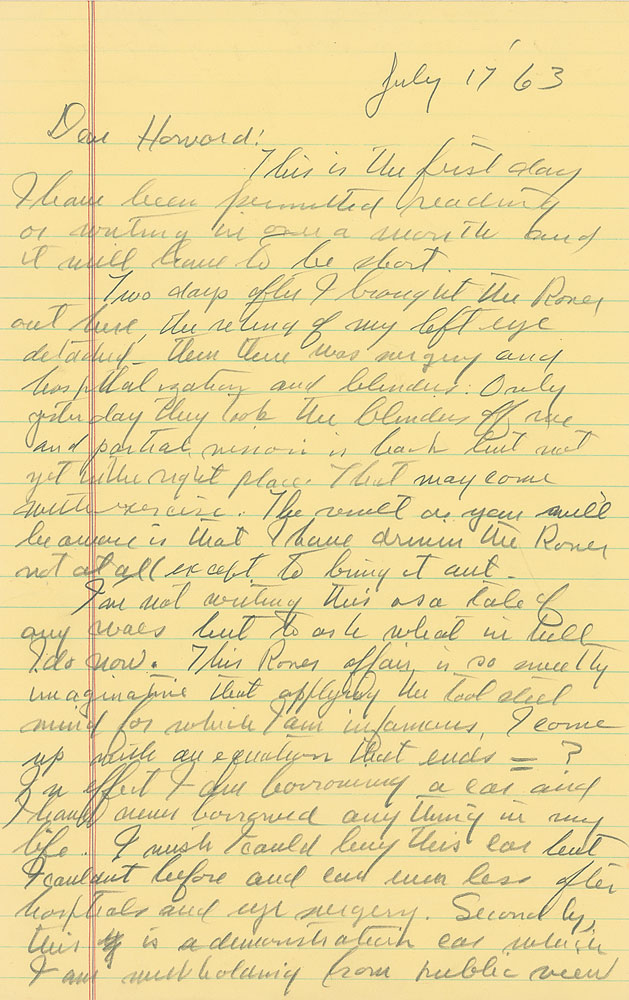 July 17 '63
Dear Howard:
This is the first day
I have been permitted reading
or writing in over a month and
it will have to be short.
Two days after I brought the Rover
out here, the retina of my left eye
detached. Then there was surgery and
hospitalization and blinders. Only
yesterday they took the blinders off me
and partial vision is back but not
yet in the right place. That may come
with exercise. The result as you will
be aware is that I have driven the Rover
not at all except to bring it out.
I'm not writing this as a tale of
my woes but to ask what in hell
I do now. This Rover affair is so sweetly
imaginative that applying the tool steel
mind for which I am infamous, I come
up with an equation that ends = ?
In effect I am borrowing a car and
I have never borrowed any thing in my
life. I wish I could buy this car but
I couldn't before and can even less after
hospitals and eye surgery. Secondly,
this is a demonstration car which
I am withholding from public view